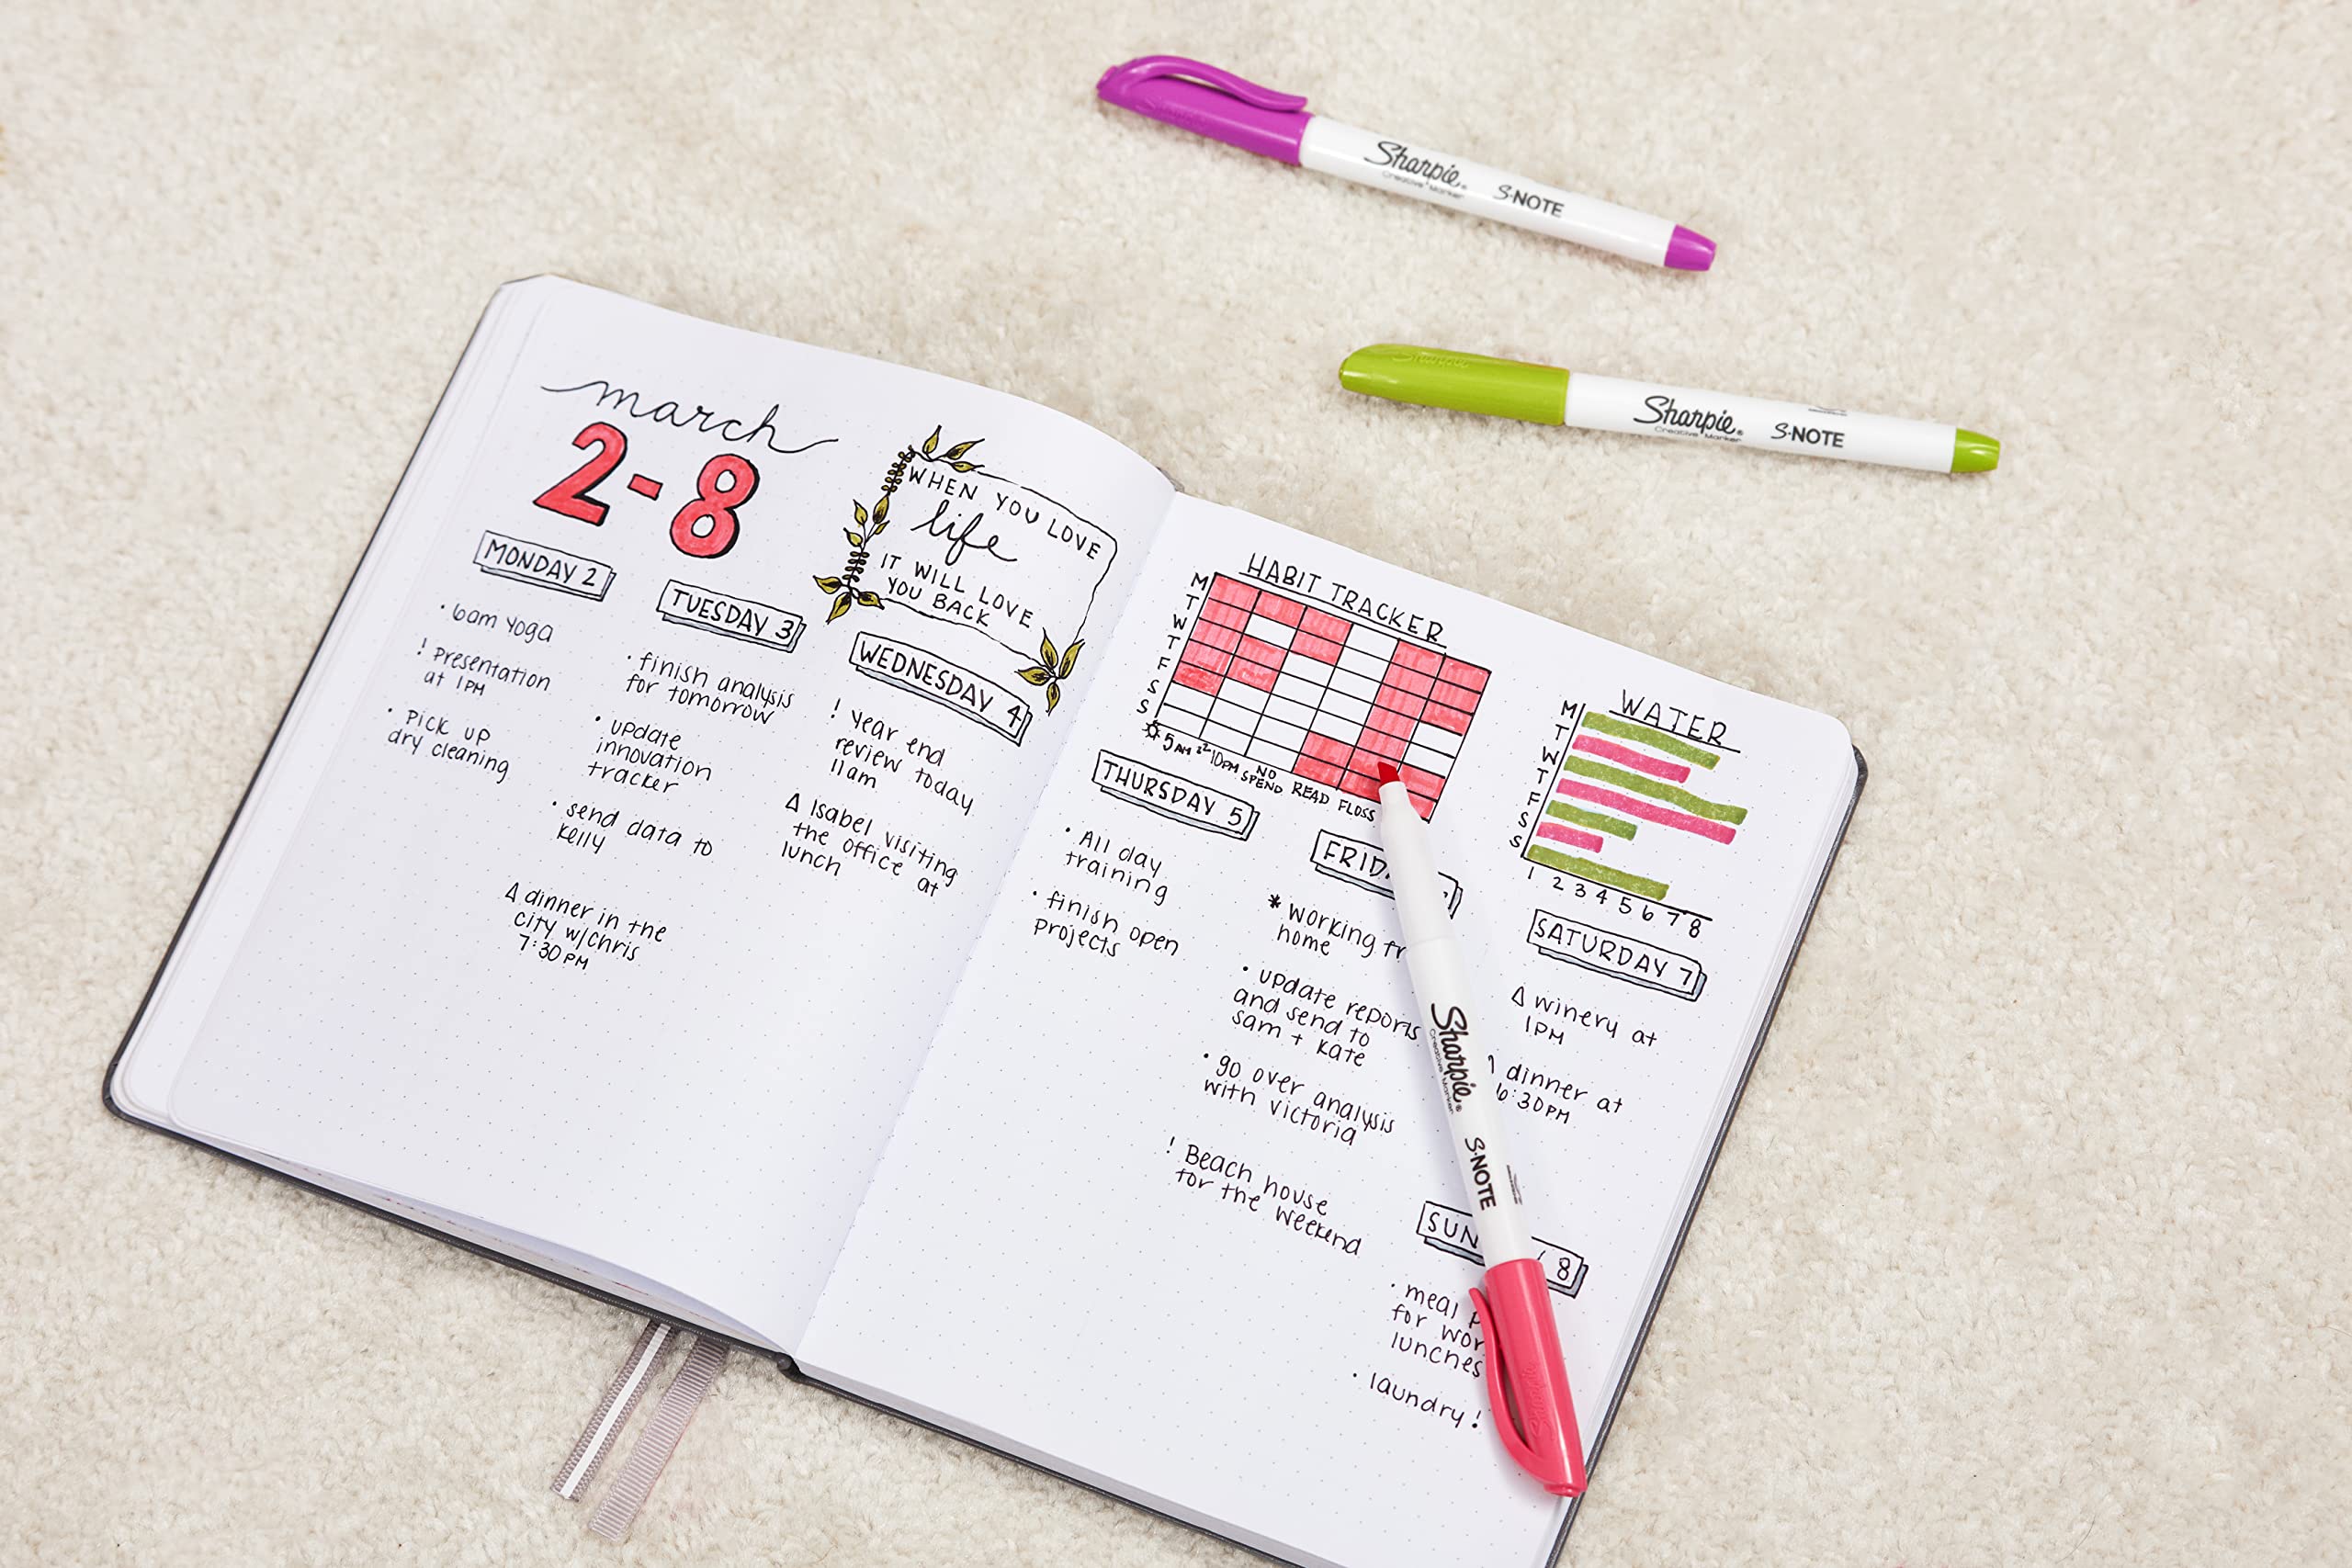 Sharpie®
Creative Marker
S·NOTE
Sharpie®
Creative Marker
S·NOTE
march
2-8
WHEN YOU LOVE
life
IT WILL LOVE
YOU BACK
MONDAY 2
· 6am yoga
! Presentation
at 1PM
· Pick up
dry cleaning
TUESDAY 3
· finish analysis
for tomorrow
· update
innovation
tracker
· send data to
kelly
Δ dinner in the
city w/Chris
7:30PM
WEDNESDAY 4
! year end
review today
11am
Δ Isabel visiting
the office at
lunch
HABIT TRACKER
M
T
W
T
F
S
S
5AM
10PM
NO
SPEND
READ
FLOSS
WATER
M
T
W
T
F
S
S
1 2 3 4 5 6 7 8
THURSDAY 5
· All day
training
· finish open
projects
FRID
* working fr
home
· update reports
and send to
sam + kate
· go over analysis
with victoria
! Beach house
for the weekend
SATURDAY 7
Δ winery at
1PM
dinner at
6:30PM
SUN 8
· meal p
for wor
lunches
· laundry!
Sharpie®
Creative Marker
S·NOTE